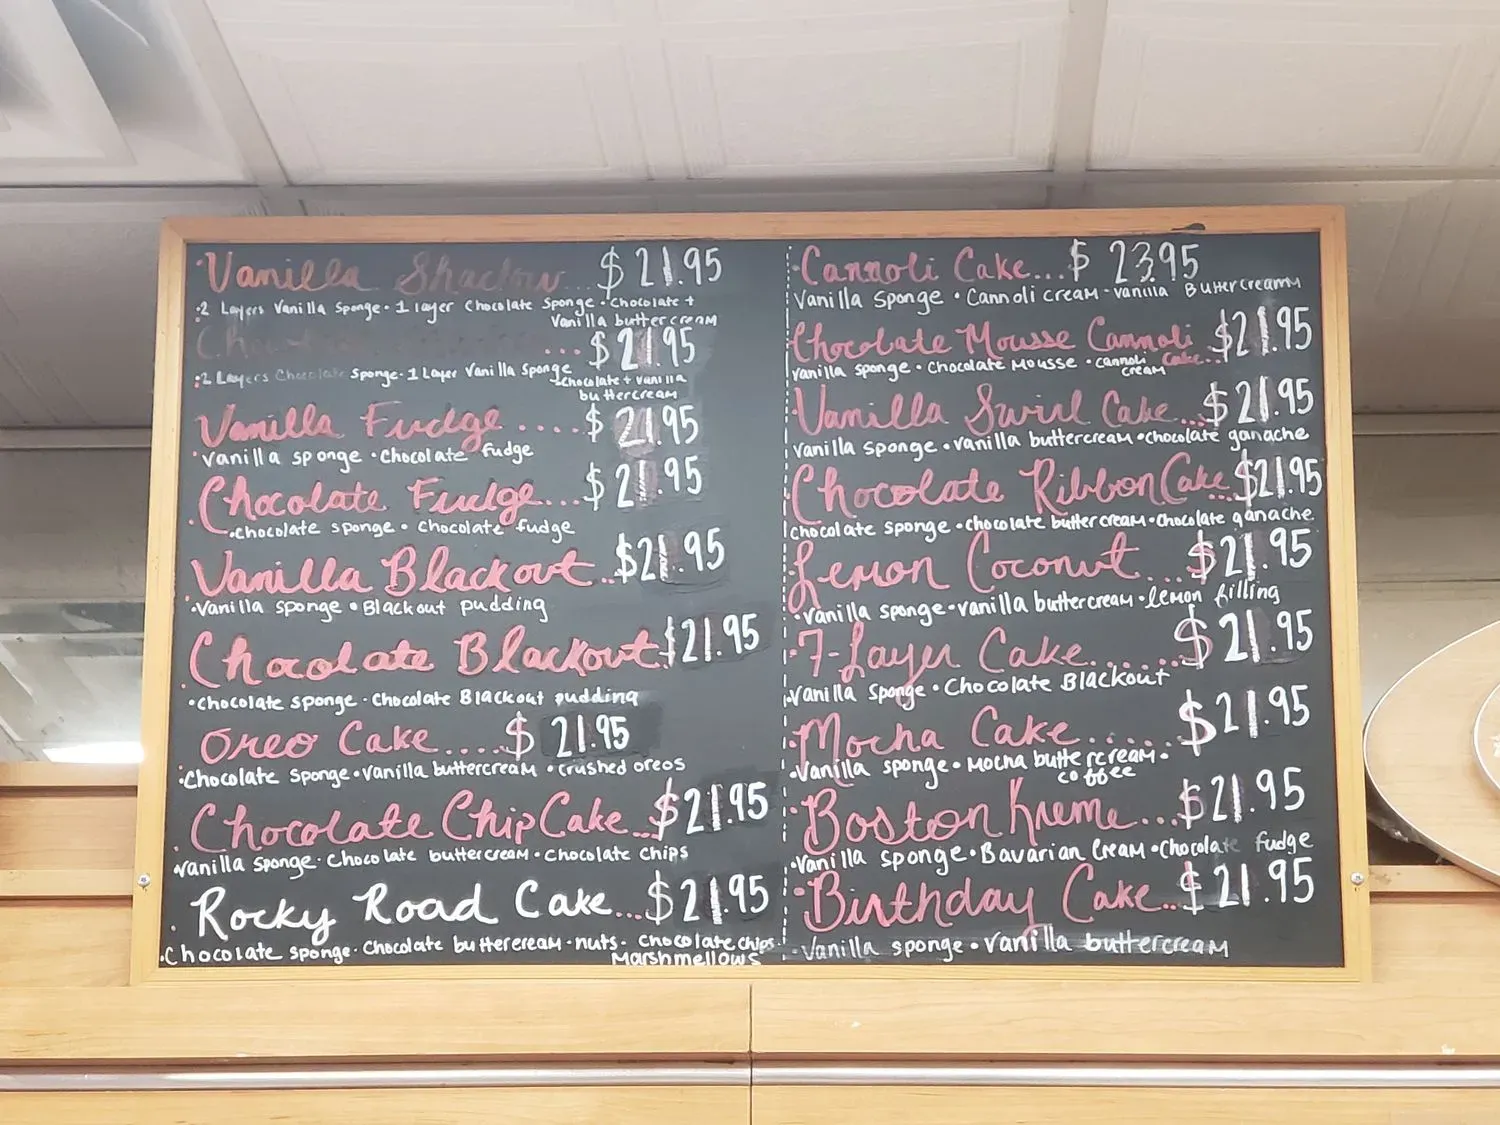 Vanilla Shadow... $21.95
• 2 Layers Vanilla Sponge • 1 layer Chocolate Sponge • Chocolate +
Vanilla buttercream
... $21.95
• 2 Layers Chocolate Sponge • 1 Layer Vanilla Sponge
• Chocolate + Vanilla
buttercream
Vanilla Fudge..... $21.95
• Vanilla sponge • Chocolate fudge
Chocolate Fudge.... $21.95
• chocolate sponge • chocolate fudge
Vanilla Blackout.. $21.95
• Vanilla sponge • Blackout pudding
Chocolate Blackout. $21.95
• chocolate sponge • Chocolate Blackout pudding
Oreo Cake..... $21.95
• Chocolate sponge • Vanilla buttercream • crushed oreos
Chocolate Chip Cake... $21.95
• Vanilla sponge • Chocolate buttercream • Chocolate chips
Rocky Road Cake... $21.95
• Chocolate sponge • Chocolate buttercream • nuts • chocolate chips •
Marshmellows
• Cannoli Cake... $23.95
Vanilla Sponge • Cannoli cream - vanilla Buttercream
Chocolate Mousse Cannoli $21.95
Cake..
vanilla sponge • Chocolate Mousse • cannoli
cream
Vanilla Swirl Cake... $21.95
vanilla sponge • vanilla buttercream • chocolate ganache
• Chocolate Ribbon Cake... $21.95
chocolate sponge • chocolate buttercream • chocolate ganache
• Lemon Coconut.... $21.95
• vanilla sponge • vanilla buttercream • lemon filling
• 7-Layer Cake....... $21.95
• Vanilla Sponge • Chocolate Blackout
• Mocha Cake..... $21.95
• Vanilla sponge • Mocha buttercream •
coffee
• Boston Kreme.... $21.95
• Vanilla sponge • Bavarian Cream • Chocolate fudge
• Birthday Cake... $21.95
• Vanilla sponge • Vanilla buttercream